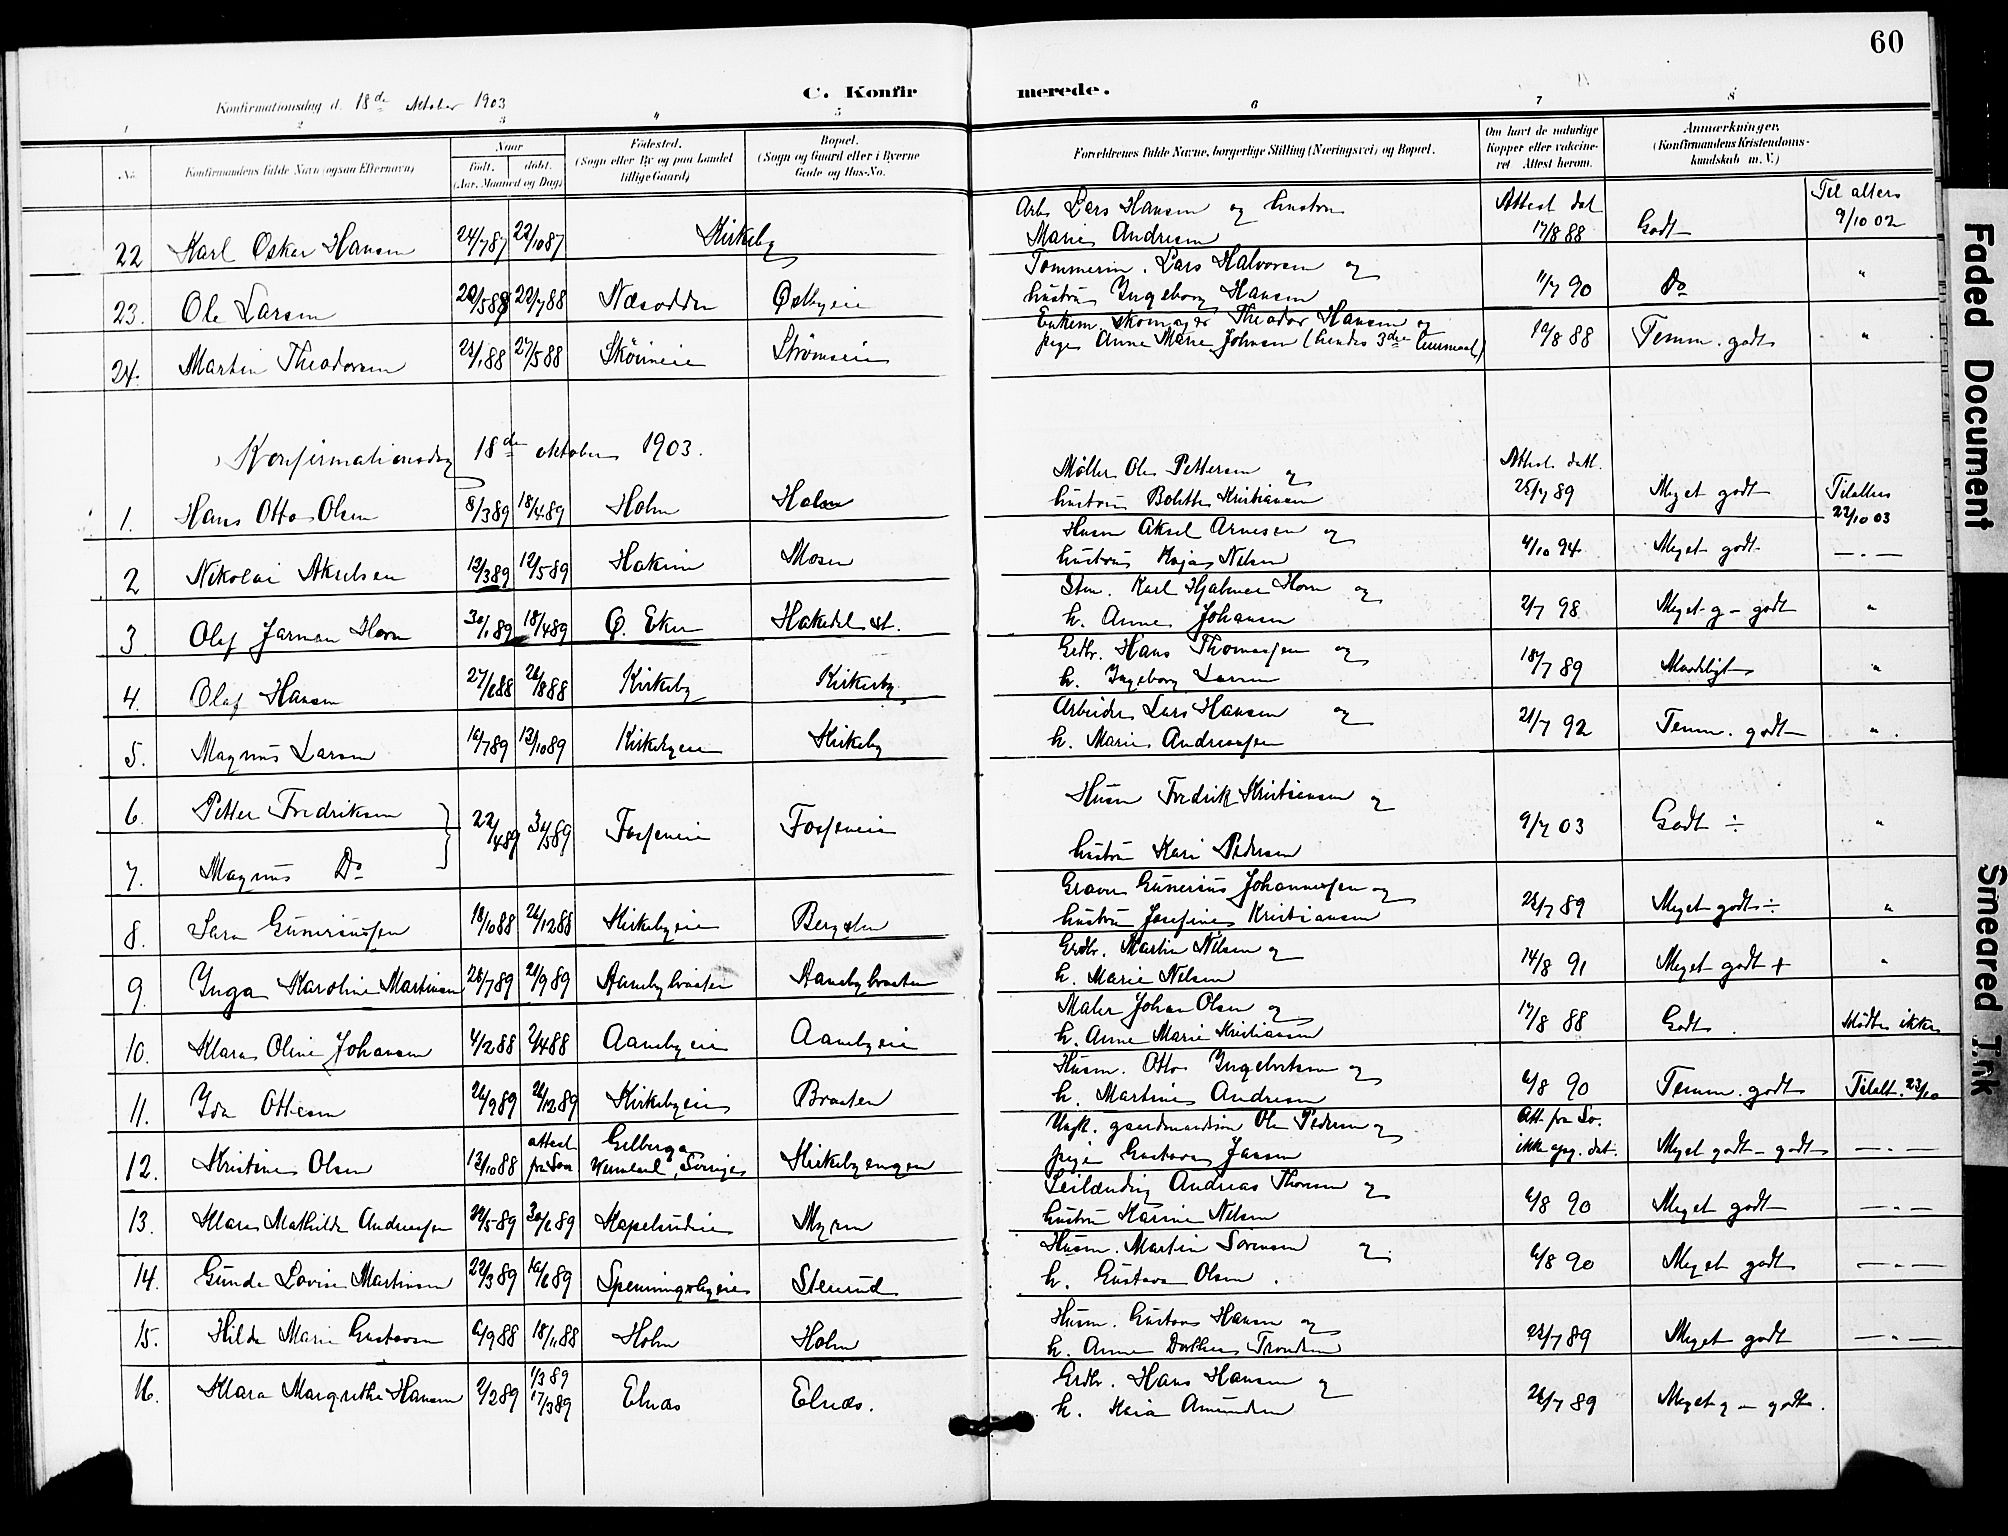 60
Konfirmationsdag d. 18de oktober 1903
C. Konfirmerede.
1 2 3 4 5 6 7 8
No. Konfirmandens fulde Navn (ogsaa Efternavn) Naar født. døbt. (Aar, Maaned og Dag) Fødested. (Sogn eller By og paa Landet tillige Gaard) Bopæl. (Sogn og Gaard eller i Byerne Gade og Hus-No. Forældrenes fulde Navne, borgerlige Stilling (Næringsvei) og Bopæl. Om havt de naturlige Kopper eller vaccineret Attest herom. Anmærkninger. (Konfirmandens Kristendomskundskab m. V.)
22 Karl Oskar Hansen 24/7 87 23/10 87 Kirkeby Arb. Lars Hansen og hustru Marie Andresen Attest dat 17/8 88 Godt Til alters 9/10 02
23. Ole Larsen 20/5 88 22/7 88 Næsodden Østbyeie Tømmerm. Lars Halvorsen og hustru Ingeborg Hansen 11/7 90 Do "
24. Martin Theodorsen 21/1 88 27/5 88 Strømseie Enkem. skomager Theodor Hansen og pige Anne Marie Johnsen (hendes 3die leiermaal) 10/8 88 Temm. godt "
Konfirmationsdag 18de oktober 1903.
1. Hans Otto Olsen 8/3 89 18/4 89 Holm Holm Møller Ole Pettersen og hustru Bolette Kristiansen Attest datt. 25/7 89 Meget godt Til alters 23/10 03
2 Nikolai Akselsen 13/3 89 12/5 89 Hakim Mosen Husm Aksel Arnesen og hustru Kaja Nilsen 4/10 94 Meget godt — " —
3. Olaf Jarman Horn 30/1 89 18/4 89 Ø. Eker Hakedal st. Stm. Karl Hjalmar Horn og h. Anne Johansen 2/7 98 Meget g – godt "
4. Olaf Hansen 27/6 88 26/8 88 Kirkeby Kirkeby Grdbr. Hans Thomassen og h. Ingeborg Larsen 18/7 89 Maadeligt "
5. Magnus Larsen 16/7 89 13/10 89 Kirkebyeie Kirkeby Arbeider Lars Hansen og h. Marie Andreassen 21/7 92 Temm. godt "
6. Petter Fredriksen
7. Magnus Do 22/4 89 30/5 89 Fosseneie Fosseneie Husm Fredrik Kristiansen og hustru Kari Pedersen 9/7 03 Godt ÷ "
8. Sara Guneriussen 18/10 88 26/12 88 Kirkebyeie Bergslen Graver Gunerius Johannessen og hustru Josefine Kristiansen 23/7 89 Meget godt ÷ "
9. Inga Karoline Martinsen 28/7 89 21/9 89 Aanebybraaten Aanebybraaten Grdbr. Martin Nilsen og h. Marie Nilsen 14/8 91 Meget godt + "
10. Klara Oline Johansen 4/2 88 2/4 88 Aanebyeie Aanebyeie Maler Johan Olsen og h. Anne Marie Kristiansen 17/8 88 Godt. Mødte ikke
11. Ida Ottesen 26/9 89 26/12 89 Kirkebyeie Braaten Husm. Otto Ingebretsen og h. Martine Andresen 6/8 90 Temm. godt Til alt. 23/10
12. Kristine Olsen 13/10 88 attest fra Sve Gilberga Wermland, Sverige Kirkebyengen Ungk. gaardmandssøn Ole Pedersen og pige Gustava Jansen Att. fra Sv. ikke opg. dat. Meget godt – godt — " —
13. Klara Mathilde Andreassen 22/5 89 30/6 89 Kapelsrudeie Myren Leilænding Andreas Thoresen og hustru Karine Nilsen 6/8 90 Meget godt — " —
14. Gunda Lovise Martinsen 22/3 89 16/6 89 Spenningsbyeie Stenrud Husm. Martin Sørensen og h. Gustava Olsen. 6/8 90 Meget godt — " —
15. Hilda Marie Gustavsen 6/9 88 18/11 88 Holm Holm Husm. Gustav Hansen og h. Anne Dorthea Trondsen 23/7 89 Meget godt — " —
16. Klara Margrethe Hansen 2/2 89 1/3 89 17/3 89 Elnæs Elnæs. Grdbr. Hans Hansen og h. Maria Amundsen 26/7 89 Meget g – godt.
Faded Document
Smeared Ink